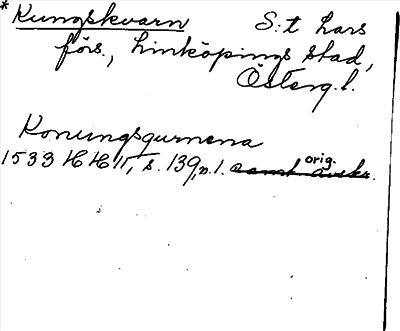 * Kungskvarn S:t Lars
förs., Linköpings stad,
Österg.l.
Konungsqurnena
1533 HH 11, s. 139, n. 1. samt avskr. orig.